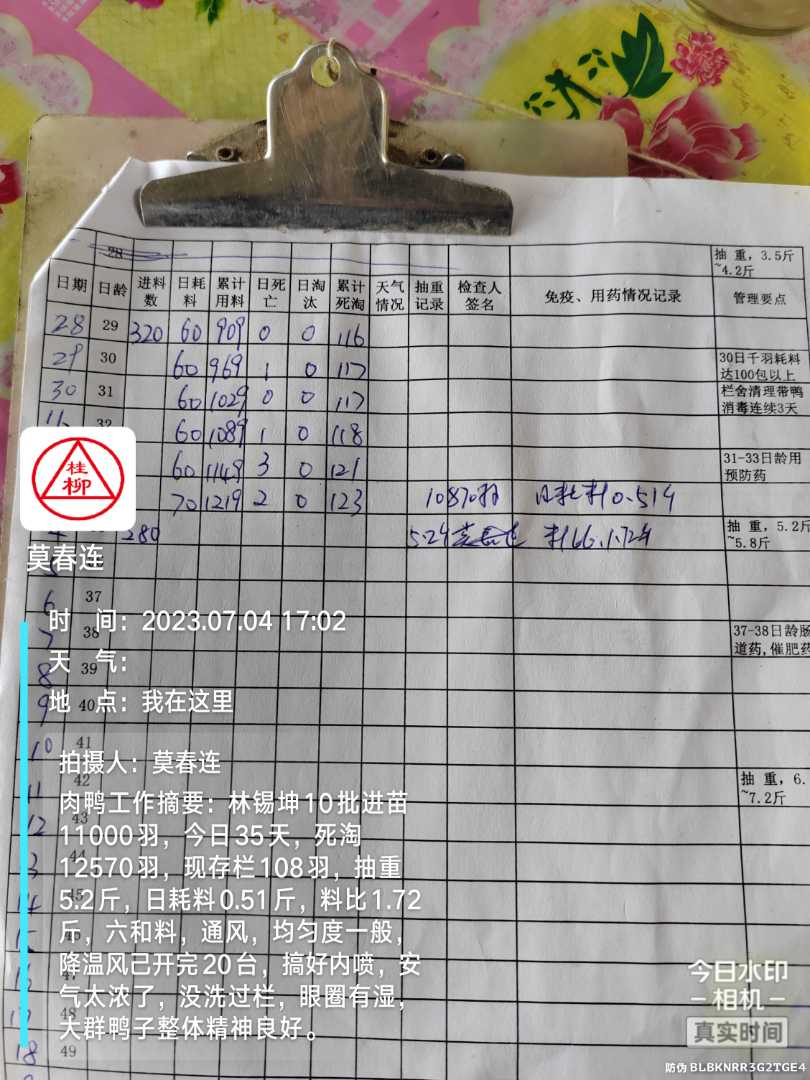 28
抽 重，3.5斤
~4.2斤
日期 日龄 进料数 日耗料 累计用料 日死亡 日淘汰 累计死淘 天气情况 抽重记录 检查人签名 免疫、用药情况记录 管理要点
28 29 320 60 909 0 0 116
29 30 60 969 1 0 117 30日千羽耗料
达100包以上
30 31 60 1029 0 0 117 栏舍清理带鸭
消毒连续3天
32 60 1089 1 0 118
60 1149 3 0 121 31-33日龄用
预防药
70 1219 2 0 123 10870羽 日耗料0.514
280 5.24 料66.1.724 抽 重，5.2斤
~5.8斤
桂
柳
莫春连
5
6 37
时 间：2023.07.04 17:02
7 38 37-38日龄肠
道药,催肥药
天 气：
8 39
地 点：我在这里
9 40
10 41
拍摄人：莫春连
11 42 抽 重，6.
~7.2斤
肉鸭工作摘要：林锡坤10批进苗
11000羽，今日35天，死淘
12570羽，现存栏108羽，抽重
5.2斤，日耗料0.51斤，料比1.72
斤，六和料，通风，均匀度一般，
降温风已开完20台，搞好内喷，安
气太浓了，没洗过栏，眼圈有湿，
大群鸭子整体精神良好。
12 43
3 44
14 45
15 46
16 47
17 48
18 49
今日水印
相机
真实时间
防伪 BLBKNRR3G2TGE4